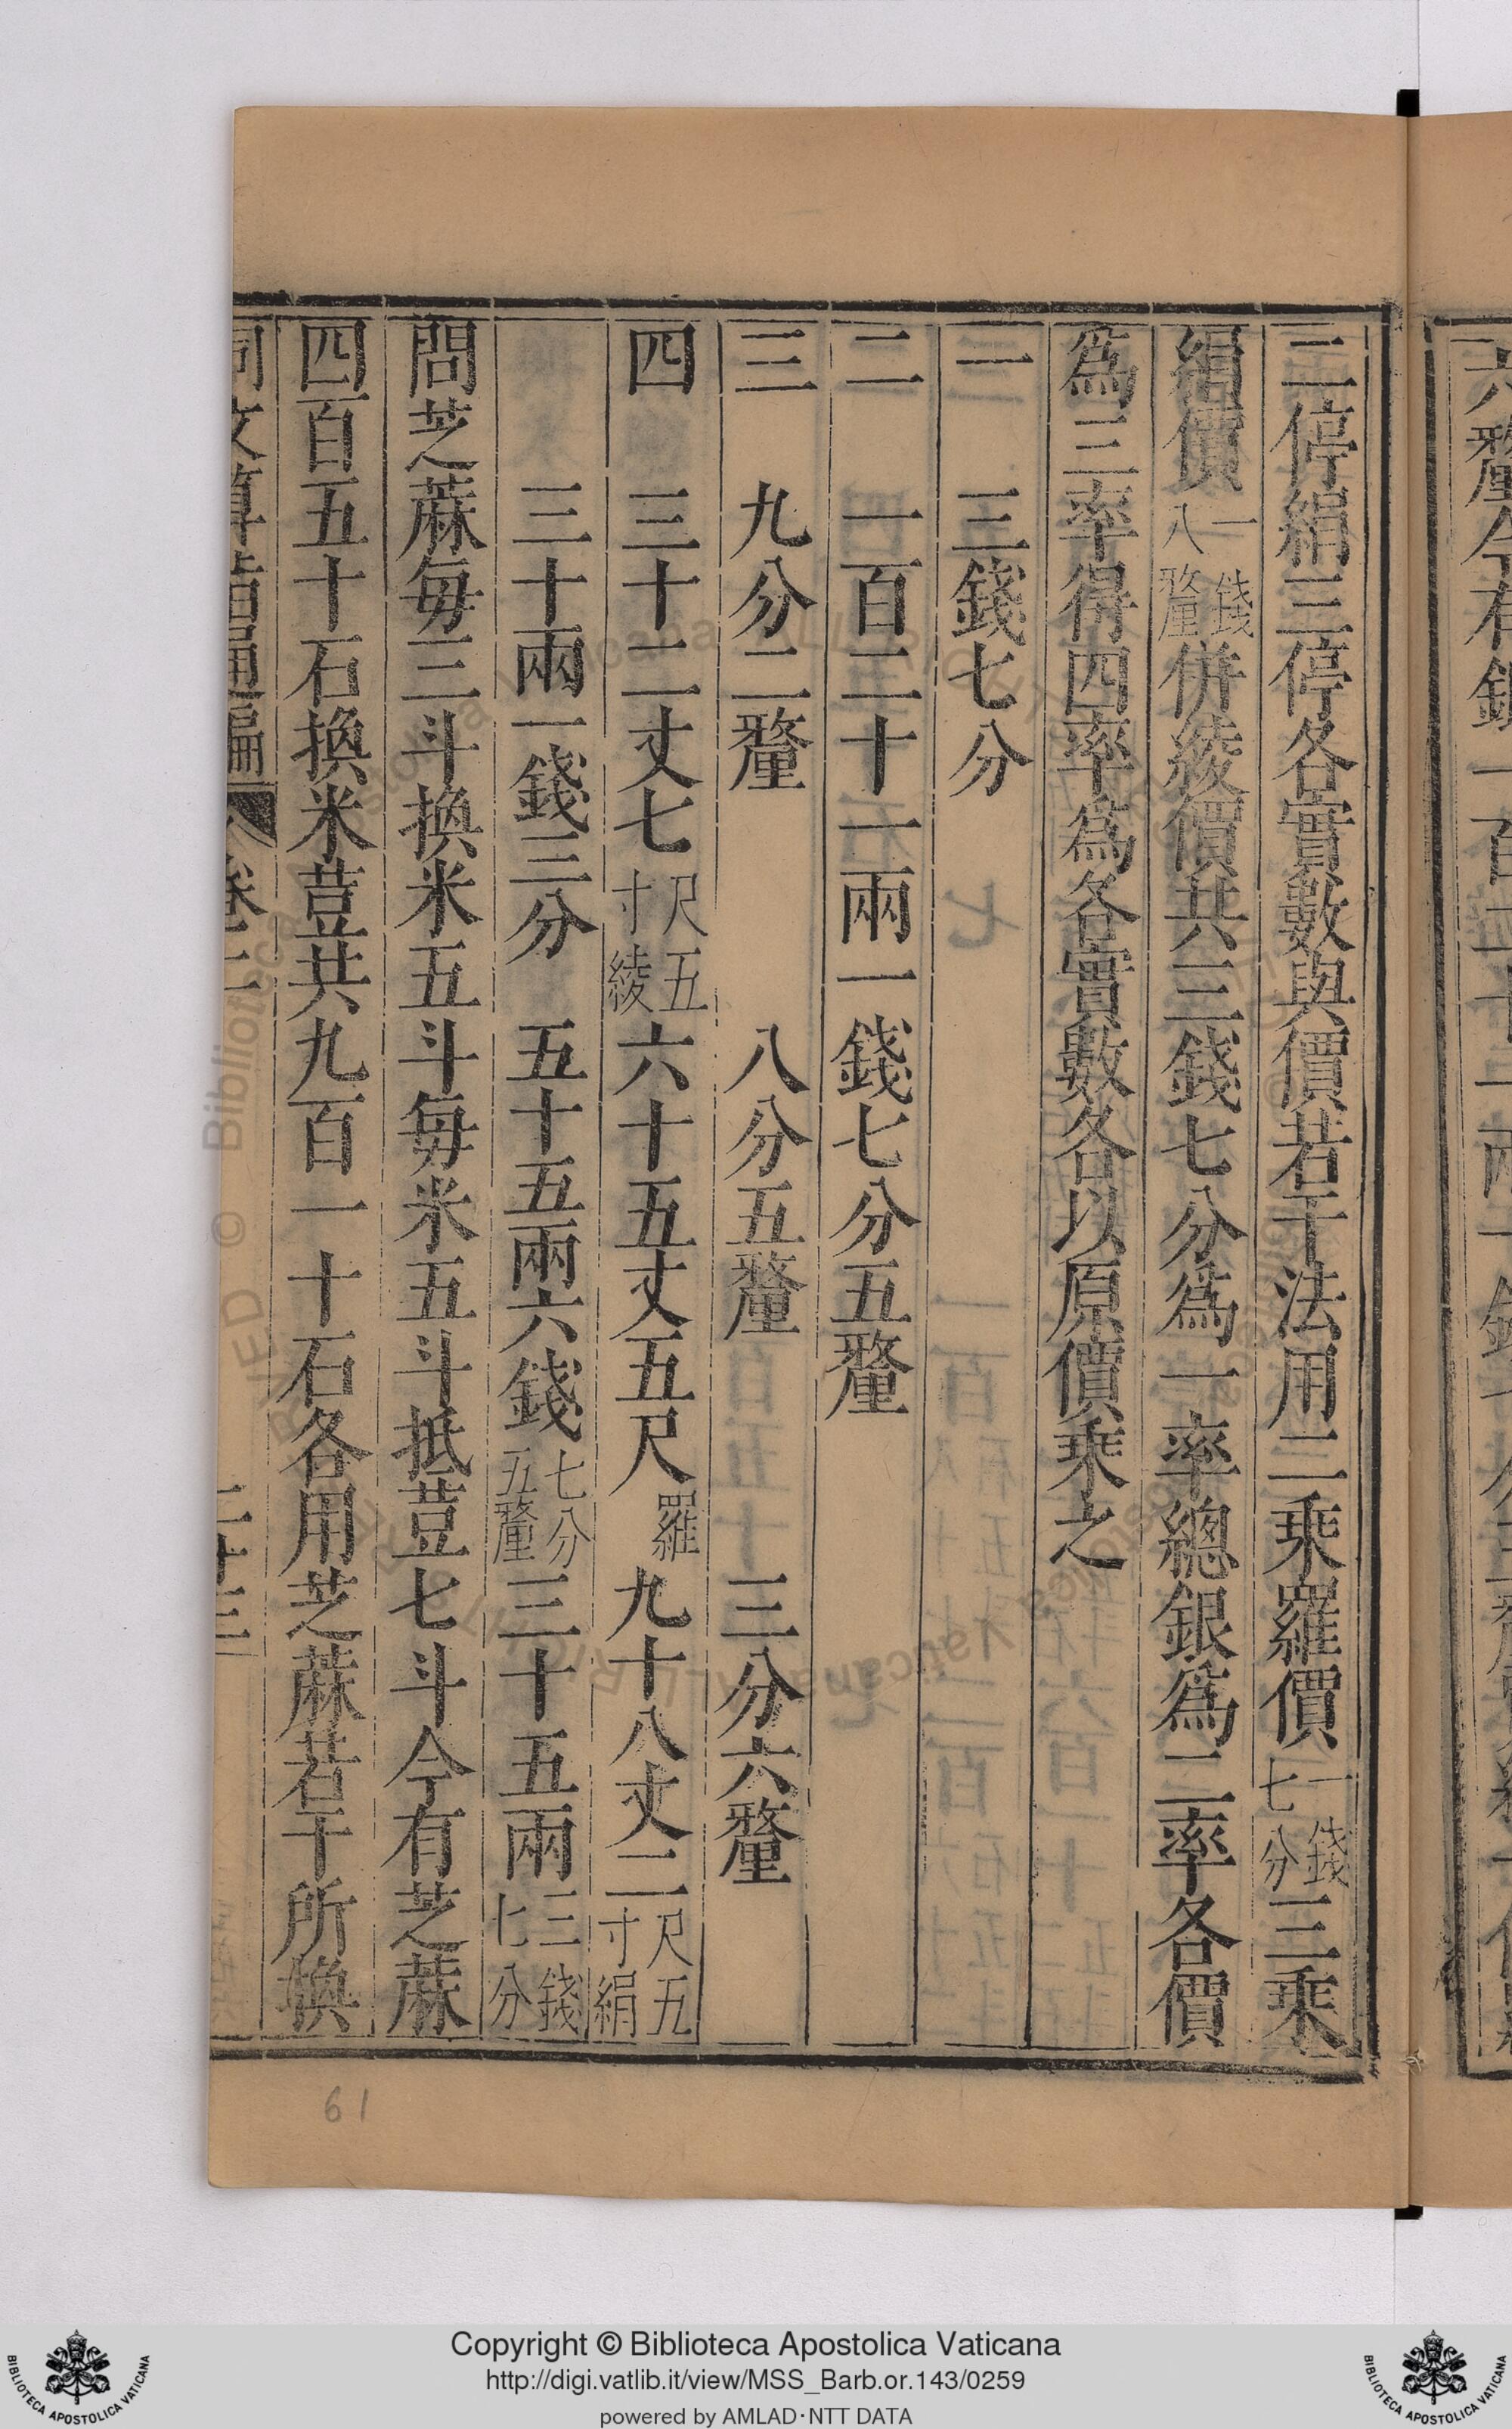 六釐今有銀一百二十一兩一錢七分五釐
二停絹三停各實數與價若干法用二乘羅價一錢七分三乘
絹價一錢八釐併綾價共三錢七分爲一率總銀爲二率各價
爲三率得四率爲各實數各以原價乘之
一 三錢七分
二 一百二十一兩一錢七分五釐
三 九分二釐 八分五釐 三分六釐
四 三十二丈七尺五寸綾六十五丈五尺羅九十八丈二尺五寸絹
三十兩一錢三分 五十五兩六錢七分五釐三十五兩三錢七分
問芝蔴每三斗換米五斗每米五斗抵荳七斗今有芝蔴
四百五十石換米荳共九百一十石各用芝蔴若干所換
同文算指通編 卷二 二十三
61
Copyright © Biblioteca Apostolica Vaticana
http://digi.vatlib.it/view/MSS_Barb.or.143/0259
powered by AMLAD·NTT DATA
BIBLIOTECA APOSTOLICA VATICANA
BIBLIOTECA APOSTOLICA VATICANA